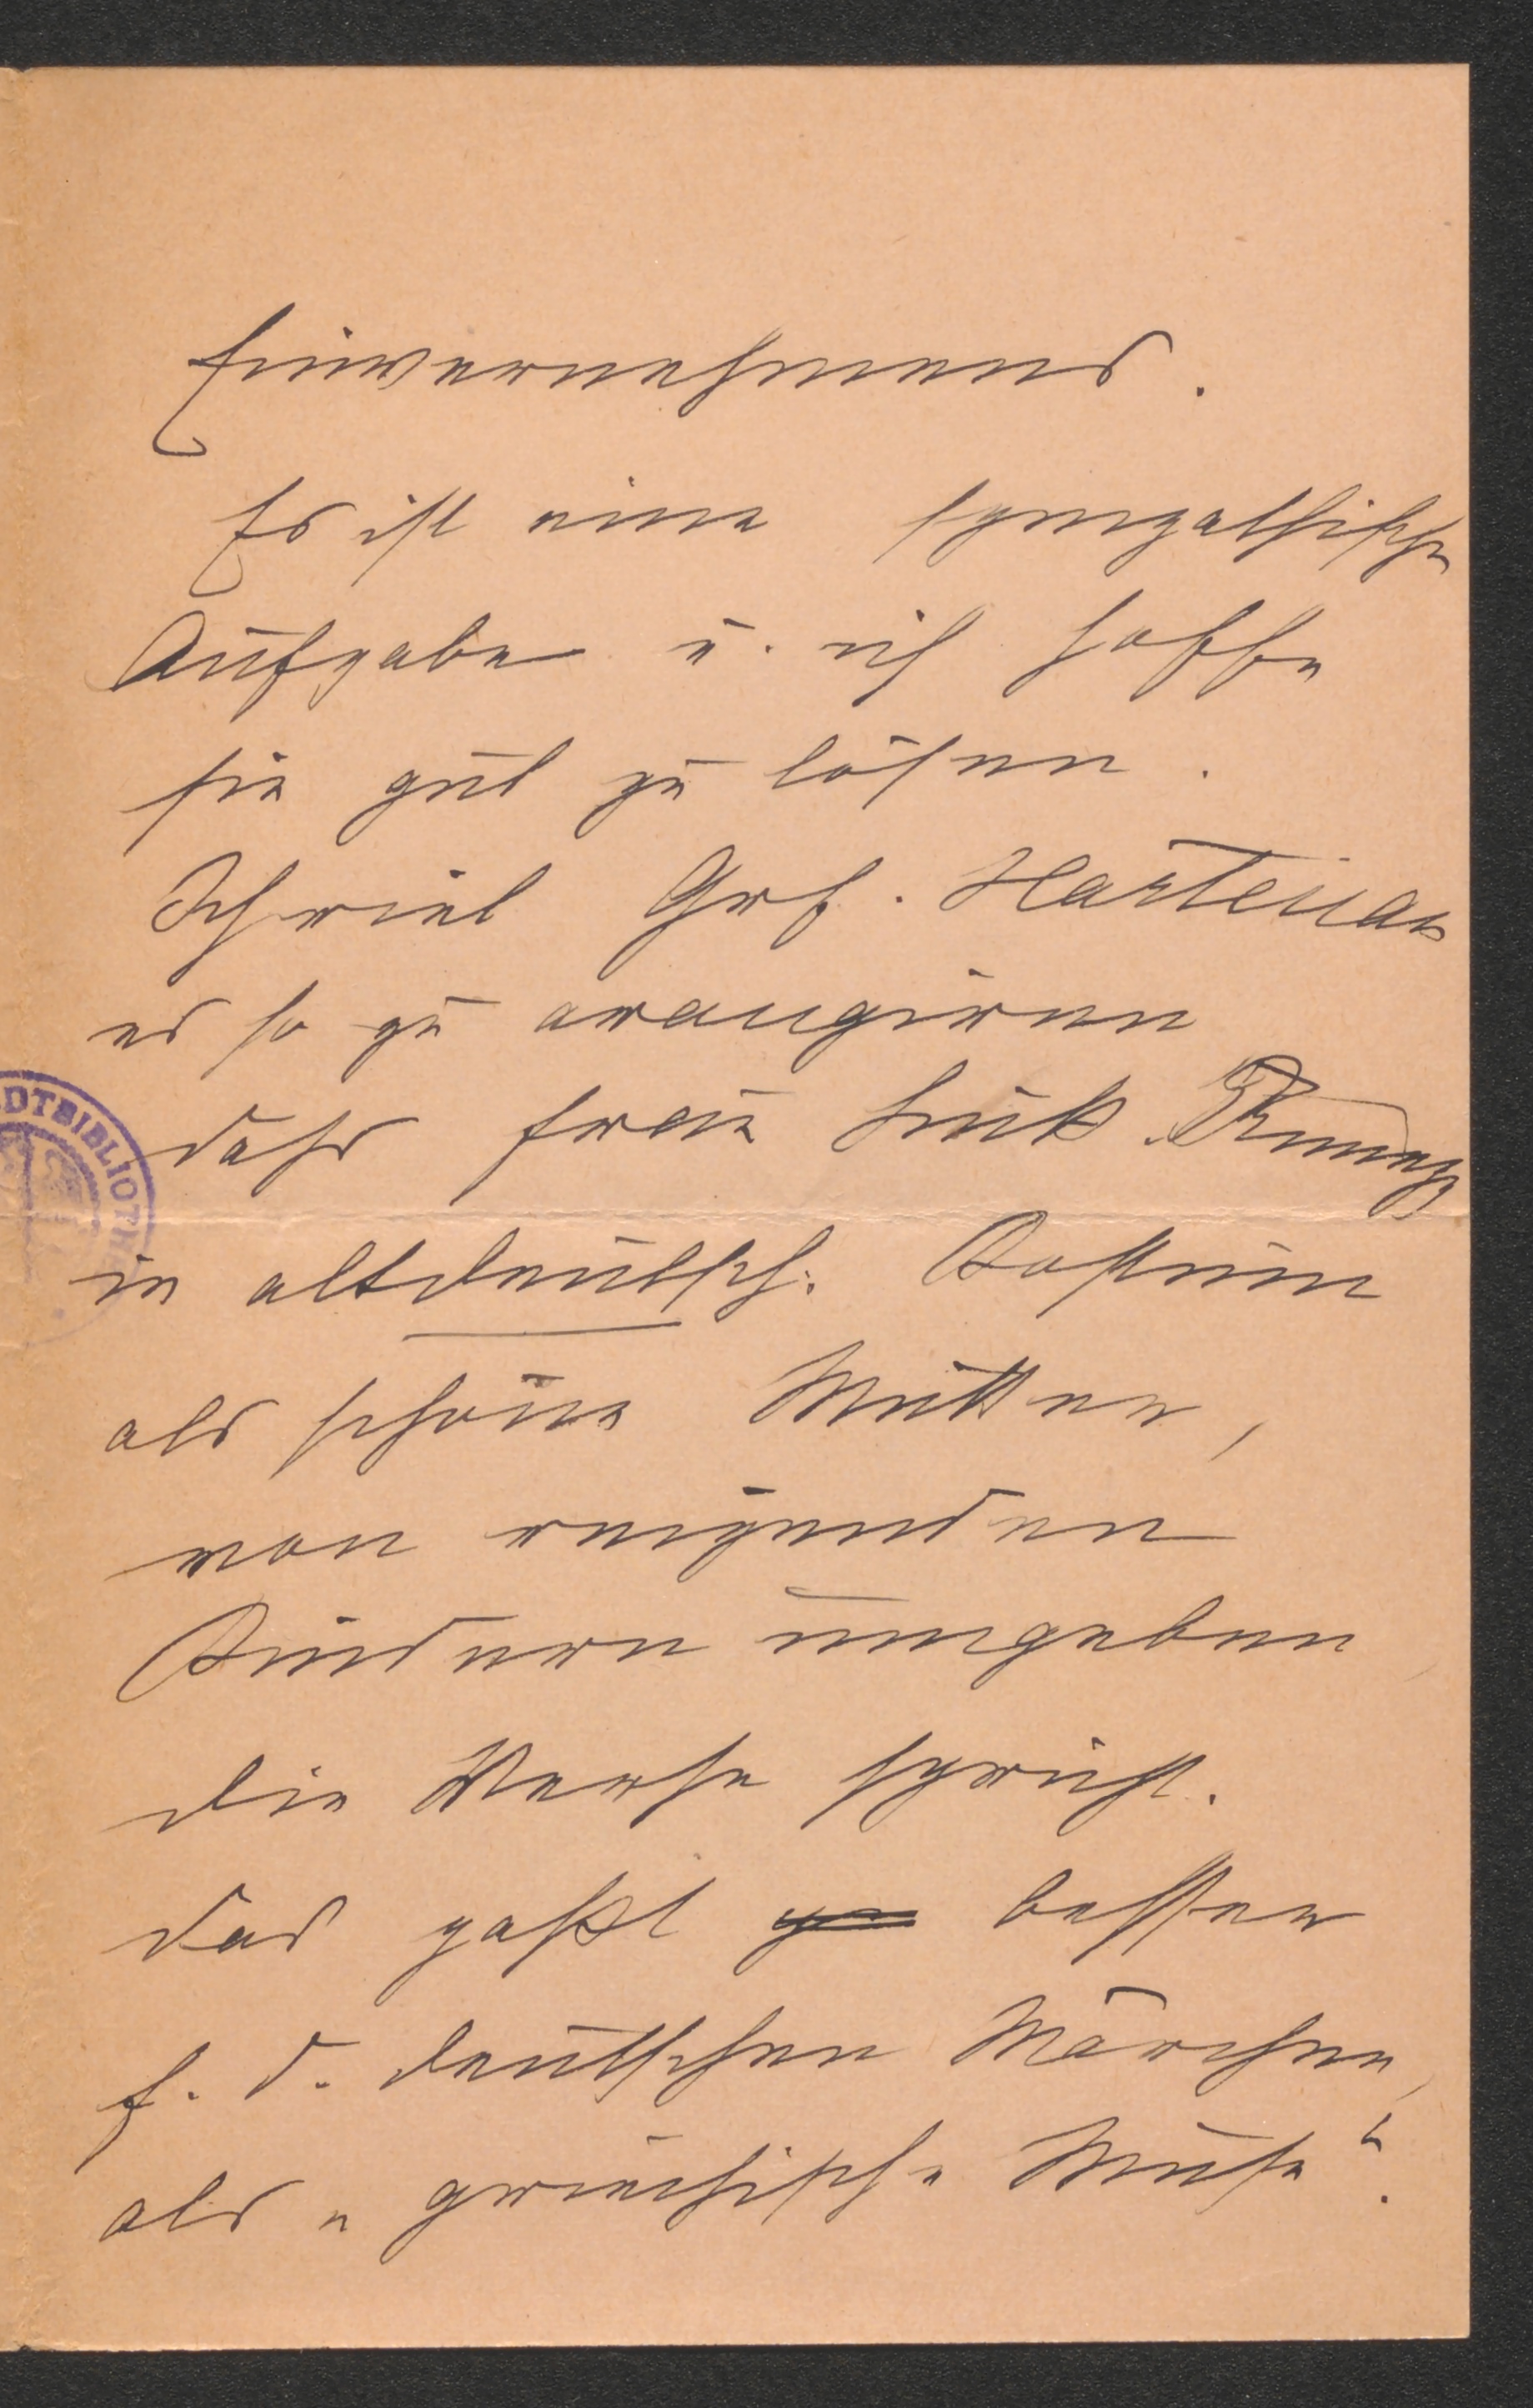 Einvernehmens.
Es ist eine sympathische
Aufgabe u. ich hoffe
sie gut zu lösen.
Ich riet Grf. Hartenau
es so zu arangiren
daß Frau
in altdeutsch. Kostüm
als schöne Mutter,
von reizenden
Kindern umgeben
die Verse spricht.
Das paßt besser
f. d. deutschen Märchen,
als „griechische Muse“.
DTBIBLIOTH